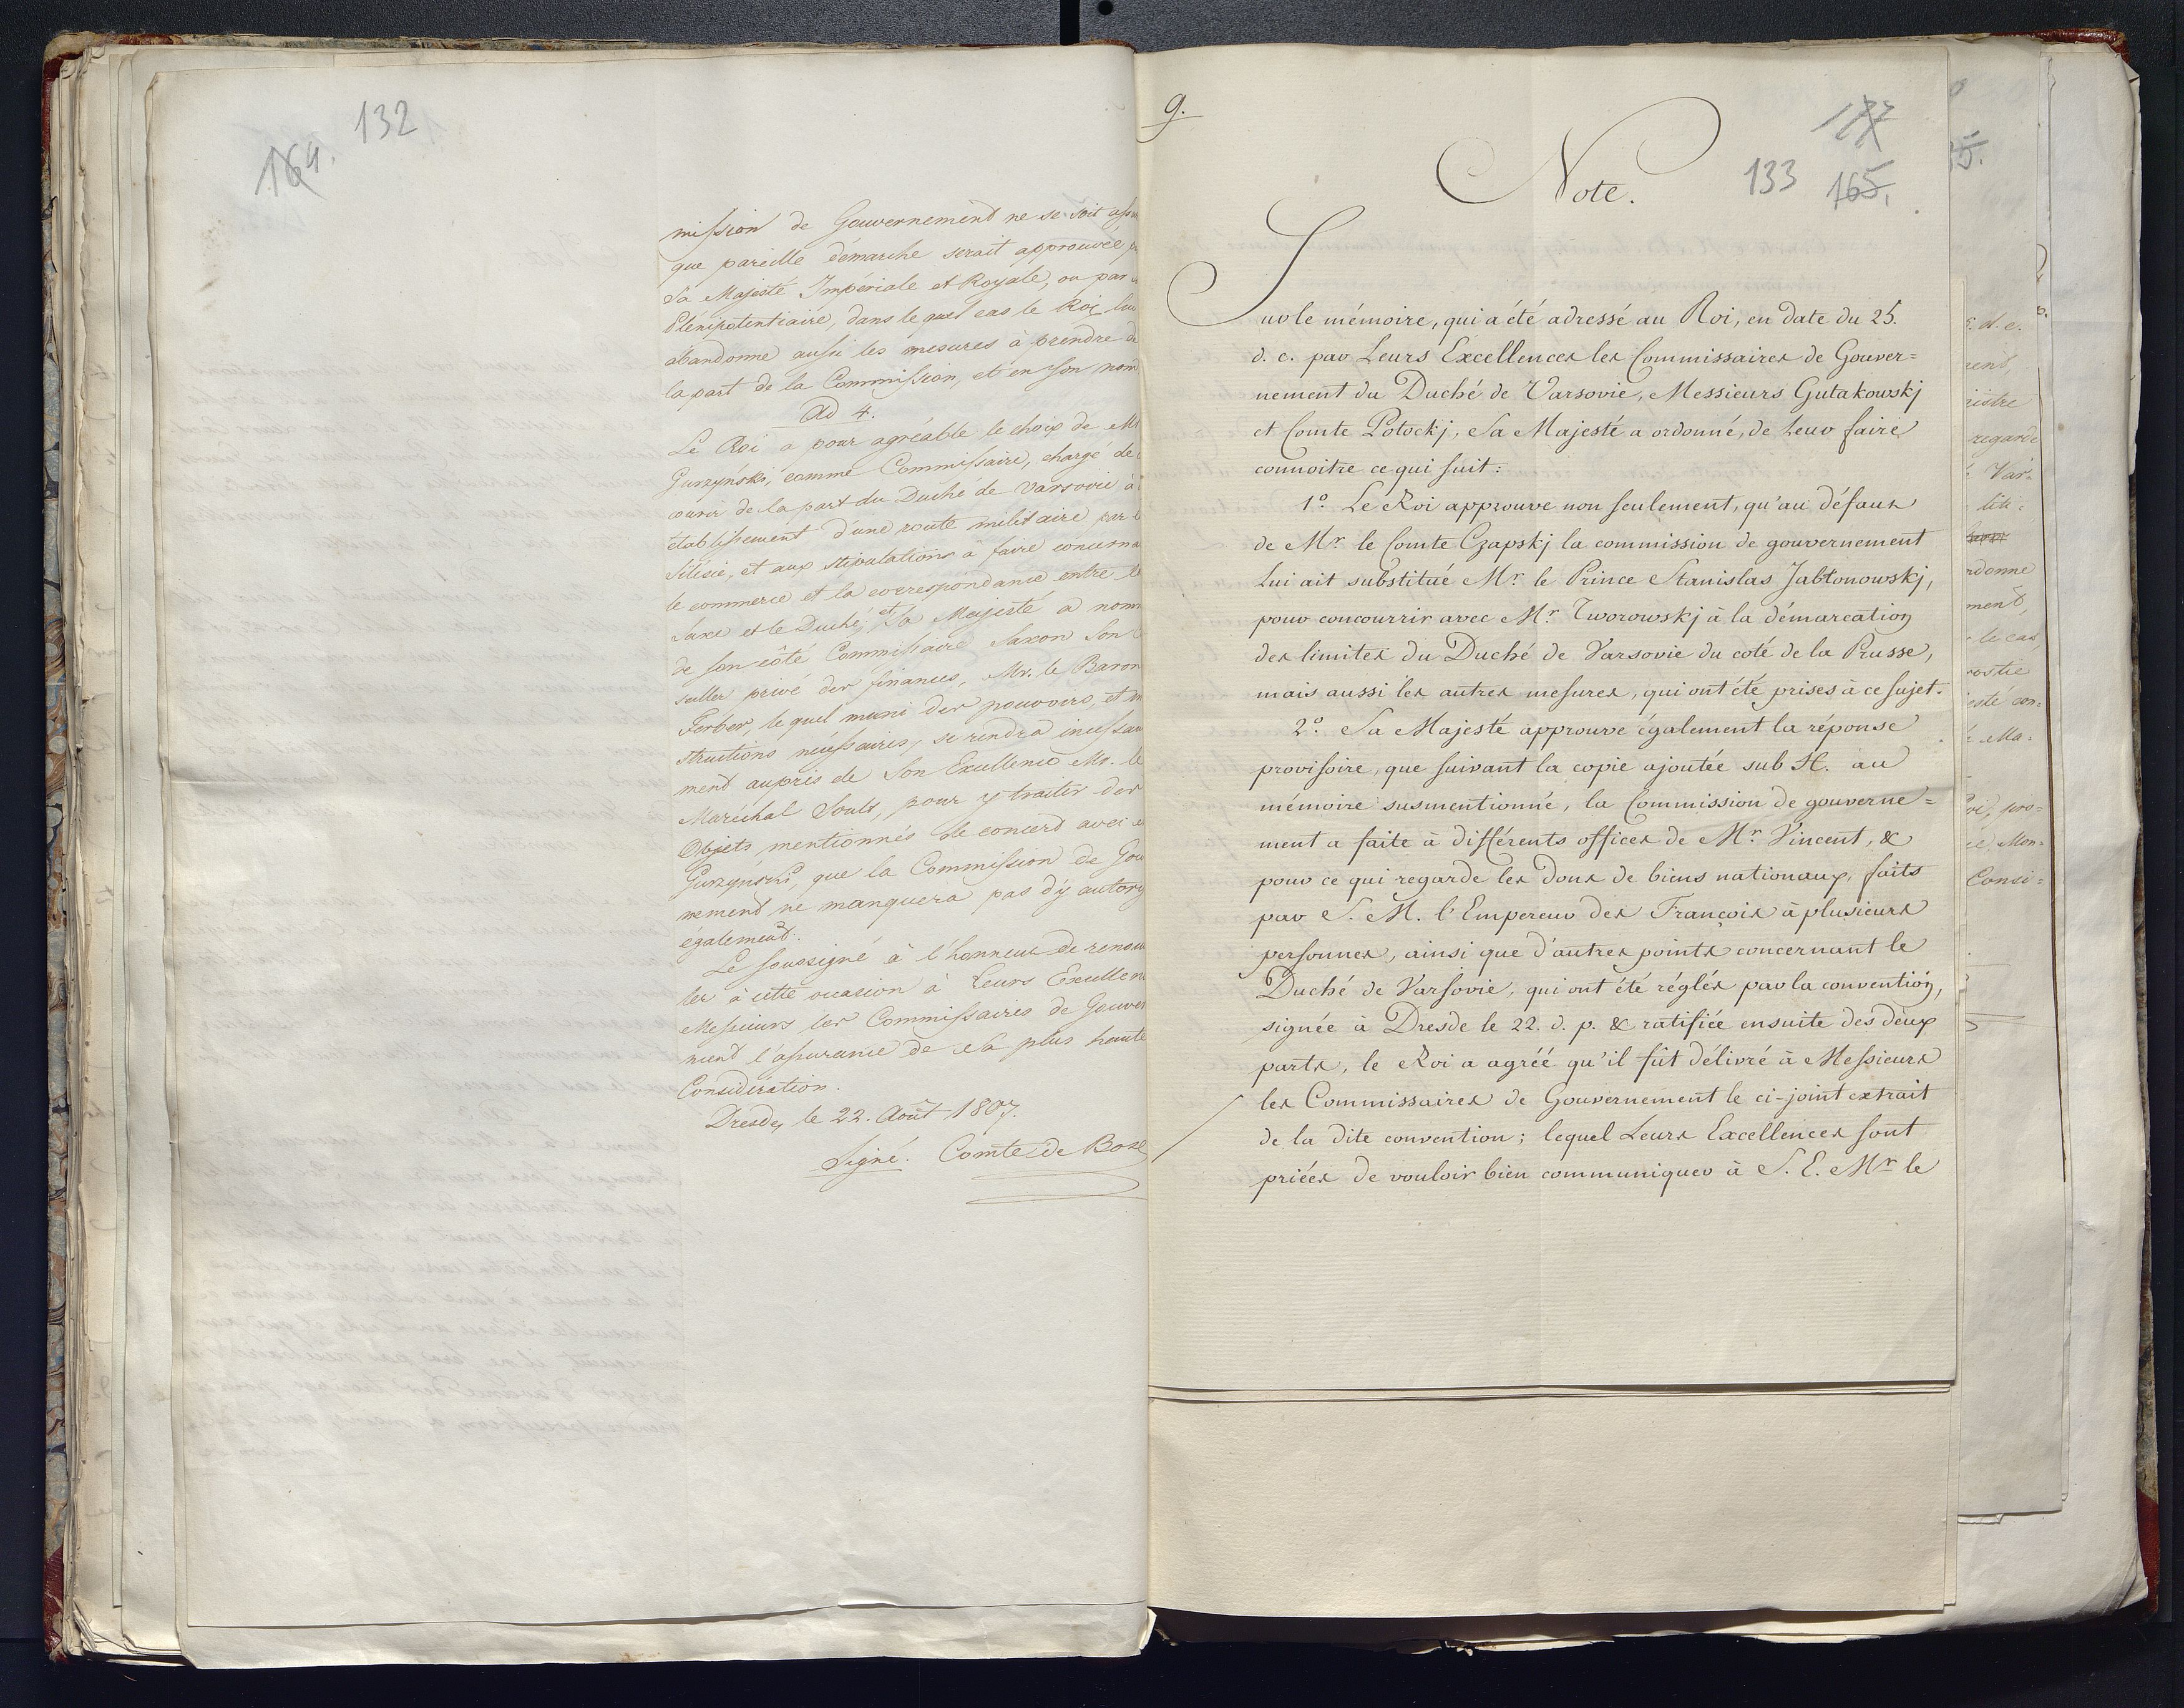 132
164.
mission de Gouvernement ne se soit assu
que pareille démarche serait approuvée p
Sa Majesté Impériale et Royale, ou par
Plénipotentiaire, dans le quel cas le Roi lui
abandonne aussi les mesures à prendre de
la part de la Commission, et en son nom
Ad 4.
Le Roi a pour agréable le choix de Mr
Gurzyński, comme Commissaire, chargé de
courir de la part du Duché de Varsovie à
établissement d'une route militaire par l
Silésie, et aux stipulations à faire concerna
le commerce et la correspondance entre l
Saxe et le Duché; et Sa Majesté a nom
de son côté Commissaire Saxon Son
seiller privé des finances, Mr. le Baron
Ferber, lequel muni des pouvoirs, et in
structions nécessaires, se rendra incessam
ment auprès de Son Excellence Mr. le
Maréchal Soult, pour y traiter des
Objets mentionnés de concert avec
Gurzyński, que la Commission de Gou
nement ne manquera pas d'y autoris
également.
Le soussigné à l'honneur de renou
ler à cette occasion à Leurs Excellen
Messieurs les Commissaires de Gouver
ment l'assurance de Sa plus haute
Considération.
Dresde, le 22. Août 1807.
Signé. Comte de Bose
9.
177
133 165.
Note.
Sur le mémoire, qui a été adressé au Roi, en date du 25.
d. c. par Leurs Excellences les Commissaires de Gouver=
nement du Duché de Varsovie, Messieurs Gutakowskj
et Comte Potockj, Sa Majesté a ordonné, de Leur faire
connoitre ce qui suit:
1º. Le Roi approuve non seulement, qu'au défaut
de Mr. le Comte Czapskj la commission de gouvernement
Lui ait substitué Mr. le Prince Stanislas Jabłonowskj,
pour concourrir avec Mr. Tworowskj à la démarcation
des limites du Duché de Varsovie du coté de la Prusse,
mais aussi les autres mesures, qui ont été prises à ce sujet.
2º. Sa Majesté approuve également la réponse
provisoire, que suivant la copie ajoutée sub H. au
mémoire susmentionné, la Commission de gouverne=
ment a faite à différents offices de Mr. Vincent, &
pour ce qui regarde les dons de biens nationaux, faits
par S. M. l'Empereur des François à plusieurs
personnes, ainsi que d'autres points concernant le
Duché de Varsovie, qui ont été réglés par la convention,
signée à Dresde le 22. d. p. & ratifiée ensuite des deux
parts, le Roi a agréé qu'il fût délivré à Messieurs
les Commissaires de Gouvernement le ci-joint extrait
de la dite convention; lequel Leurs Excellences sont
priées de vouloir bien communiquer à S. E. Mr le